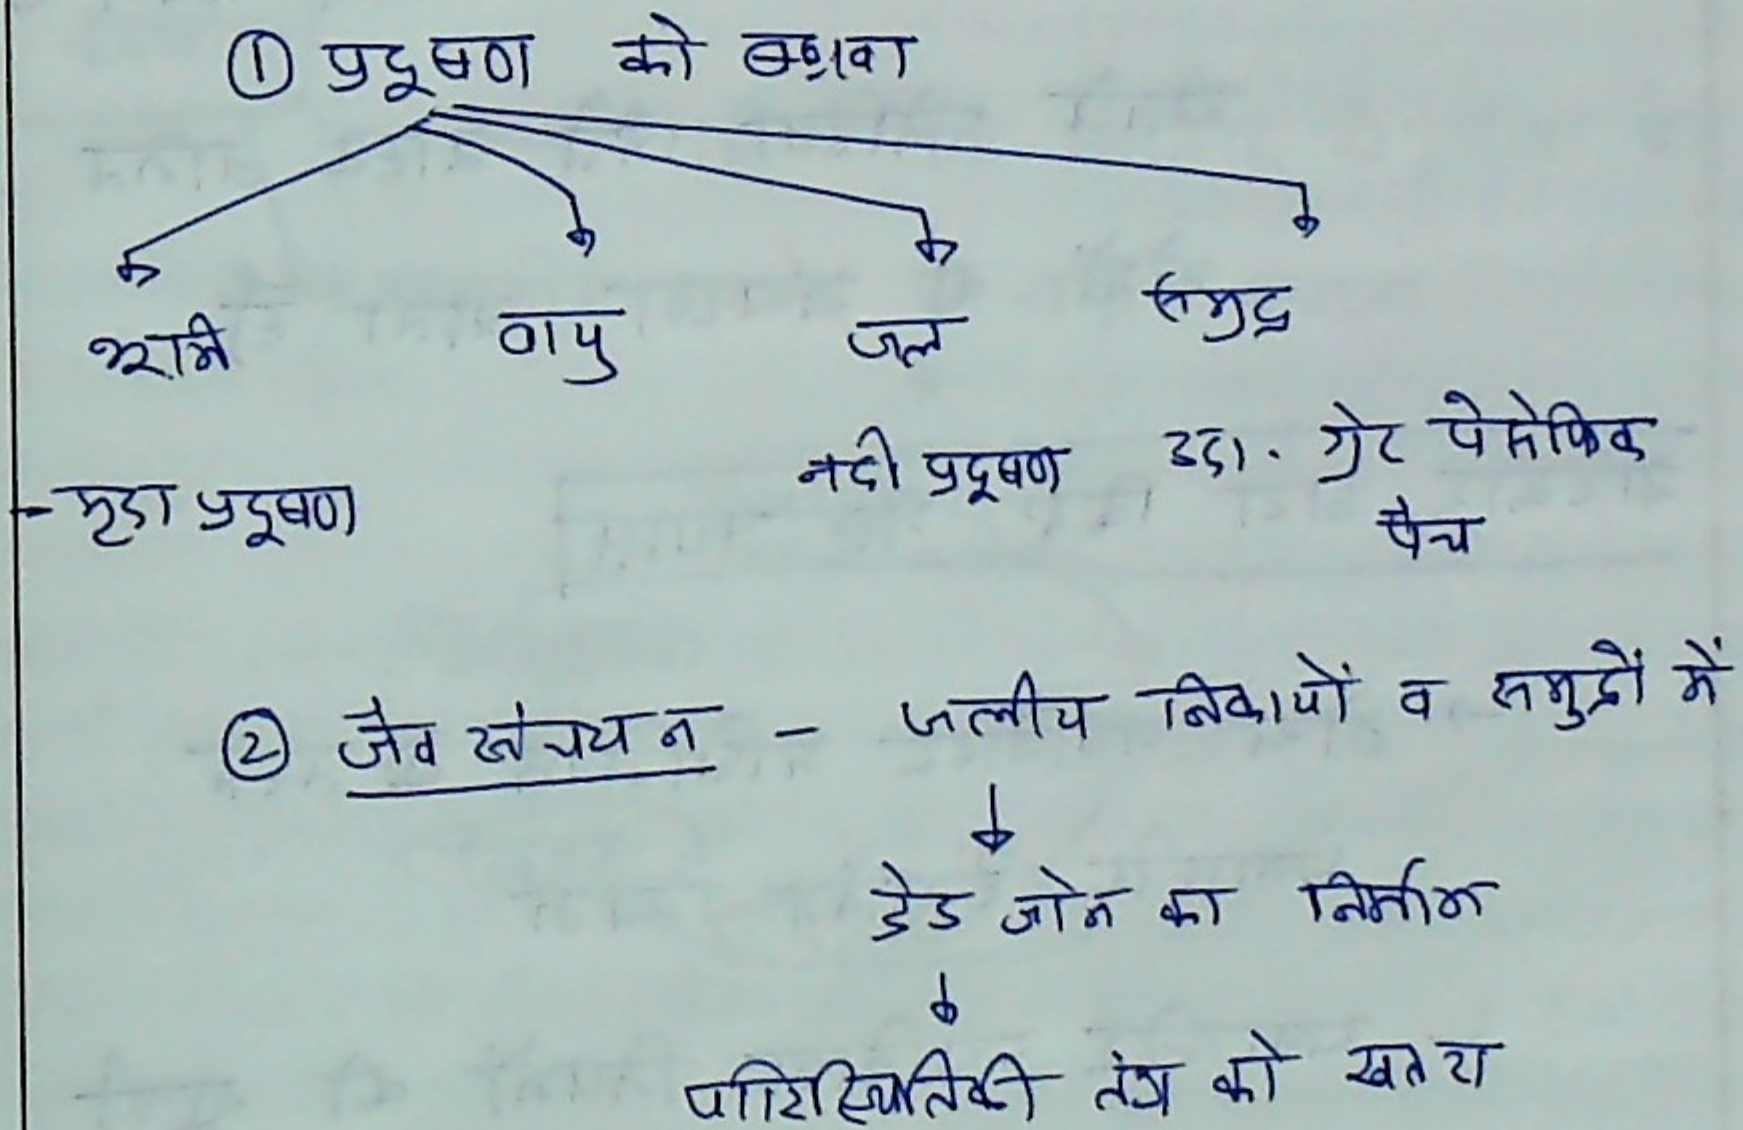 ① प्रदूषण को बढ़ावा
भूमि वायु जल समुद्र
- मृदा प्रदूषण नदी प्रदूषण उदा. ग्रेट पेसेफिक
पैच
② जैव संचयन - जलीय निकायों व समुद्रों में
↓
डेड जोन का निर्माण
↓
पारिस्थितिकी तंत्र को खतरा